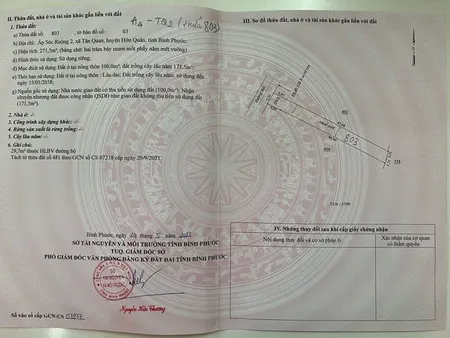 II. Thửa đất, nhà ở và tài sản khác gắn liền với đất
A4 - TQ2 (thửa 803)
1. Thửa đất:
a) Thửa đất số: 803 tờ bản đồ số: 03
b) Địa chỉ: Ấp Sóc Ruộng 2, xã Tân Quan, huyện Hớn Quản, tỉnh Bình Phước;
c) Diện tích: 271,5m², (bằng chữ: hai trăm bảy mươi mốt phẩy năm mét vuông)
d) Hình thức sử dụng: Sử dụng riêng;
đ) Mục đích sử dụng: Đất ở tại nông thôn 100,0m²; đất trồng cây lâu năm 171,5m²;
e) Thời hạn sử dụng: Đất ở tại nông thôn: Lâu dài; Đất trồng cây lâu năm: sử dụng đến
ngày 15/01/2058;
g) Nguồn gốc sử dụng: Nhà nước giao đất có thu tiền sử dụng đất (100,0m²); Nhận
chuyển nhượng đất được công nhận QSDĐ như giao đất không thu tiền sử dụng đất
(171,5m²).
2. Nhà ở: -/-
3. Công trình xây dựng khác: -/-
4. Rừng sản xuất là rừng trồng: -/-
5. Cây lâu năm: -/-
6. Ghi chú:
29,7m² thuộc HLBV đường bộ
Tách từ thửa đất số 481 theo GCN số CS 07218 cấp ngày 29/9/2021.
Bình Phước, ngày 5 năm 2022
SỞ TÀI NGUYÊN VÀ MÔI TRƯỜNG TỈNH BÌNH PHƯỚC
TUQ. GIÁM ĐỐC SỞ
PHÓ GIÁM ĐỐC VĂN PHÒNG ĐĂNG KÝ ĐẤT ĐAI TỈNH BÌNH PHƯỚC
Số vào sổ cấp GCN:CS
III. Sơ đồ thửa đất, nhà ở và tài sản khác gắn liền với đất
803
338
IV. Những thay đổi sau khi cấp giấy chứng nhận
Nội dung thay đổi và cơ sở pháp lý
Xác nhận của cơ quan
có thẩm quyền